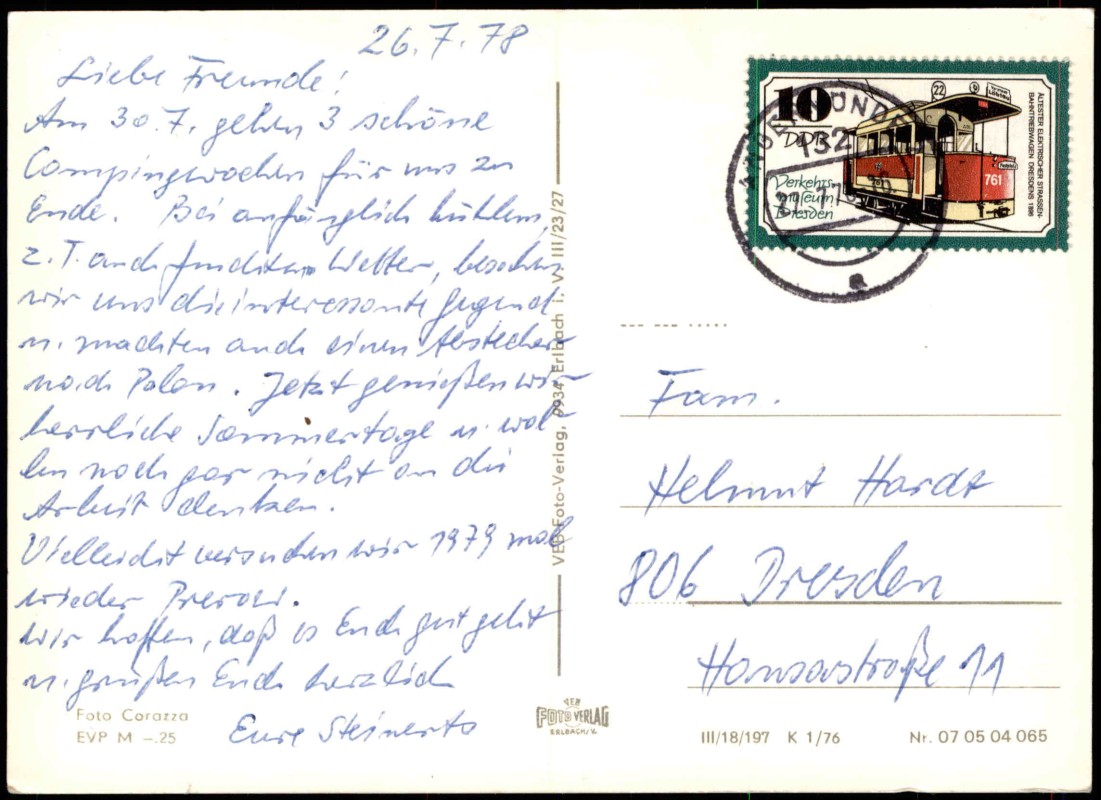 26.7.78
Liebe Freunde!
Am 30.7. gehen 3 schöne
Campingwochen für uns zu
Ende. Bei anfänglich kühlem,
z. T. auch feuchtem Wetter, besahen
wir uns die interessante Gegend
u. machten auch einen Abstecher
nach Polen. Jetzt genießen wir
herrliche Sommertage u. wol-
len noch gar nicht an die
Arbeit denken.
Vielleicht versuchen wir 1979 mal
wieder Prerow.
Wir hoffen, daß es Euch gut geht
u. grüßen Euch herzlich
Eure Steinerts
Foto Corazza
EVP M –.25
VEB Foto-Verlag, 9934 Erlbach i. V. III/23/27
VEB
FOTO VERLAG
ERLBACH/V.
10
DDR
Verkehrs-
museum
Dresden
ÄLTESTER ELEKTRISCHER STRASSEN-
BAHNTRIEBWAGEN DRESDENS 1896
22
9
761
132
a
Fam.
Helmut Hardt
806 Dresden
Hansastraße 11
III/18/197 K 1/76 Nr. 07 05 04 065